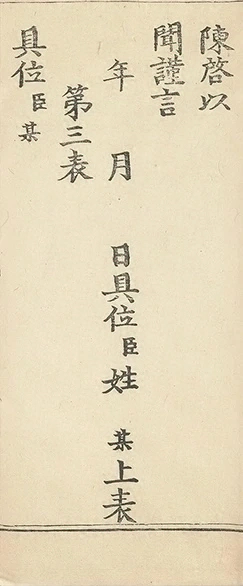 陳啓以
聞謹言
年 月 日具位臣姓 某上表
第三表
具位臣某